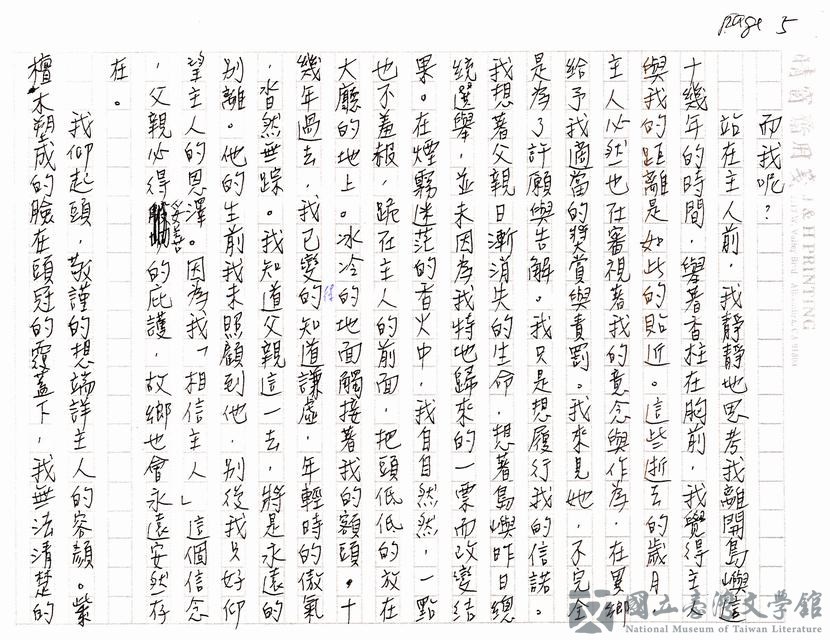 page 5
而我呢?
站在主人前,我靜靜地思考我離開島嶼這
十幾年的時間,舉著香柱在胸前,我覺得主人
與我的距離是如此的貼近。這些逝去的歲月,
主人必然也在審視著我的意念與作為,在異鄉
給予我適當的獎賞與責罰。我來見她,不完全
是為了許願與告解。我只是想履行我的信諾。
我想著父親日漸消失的生命,想著島嶼昨日總
統選舉,並未因為我特地歸來的一票而改變結
果。在煙霧迷茫的香火中,我自自然然,一點
也不羞赧,跪在主人的前面,把頭低低的放在
大廳的地上。冰冷的地面觸接著我的額頭。十
幾年過去,我已變的得知道謙虛,年輕時的傲氣
,杳然無踪。我知道父親這一去,將是永遠的
別離。他的生前我未照顧到他,別後我只好仰
望主人的恩澤。因為我「相信主人」這個信念
,父親必得妥善的庇護,故鄉也會永遠安然存
在。
我仰起頭,敬謹的想端詳主人的容顏。紫
檀木塑成的臉在頭冠的覆蓋下,我無法清楚的
J & H PRINTING
國立臺灣文學館
National Museum of Taiwan Literature